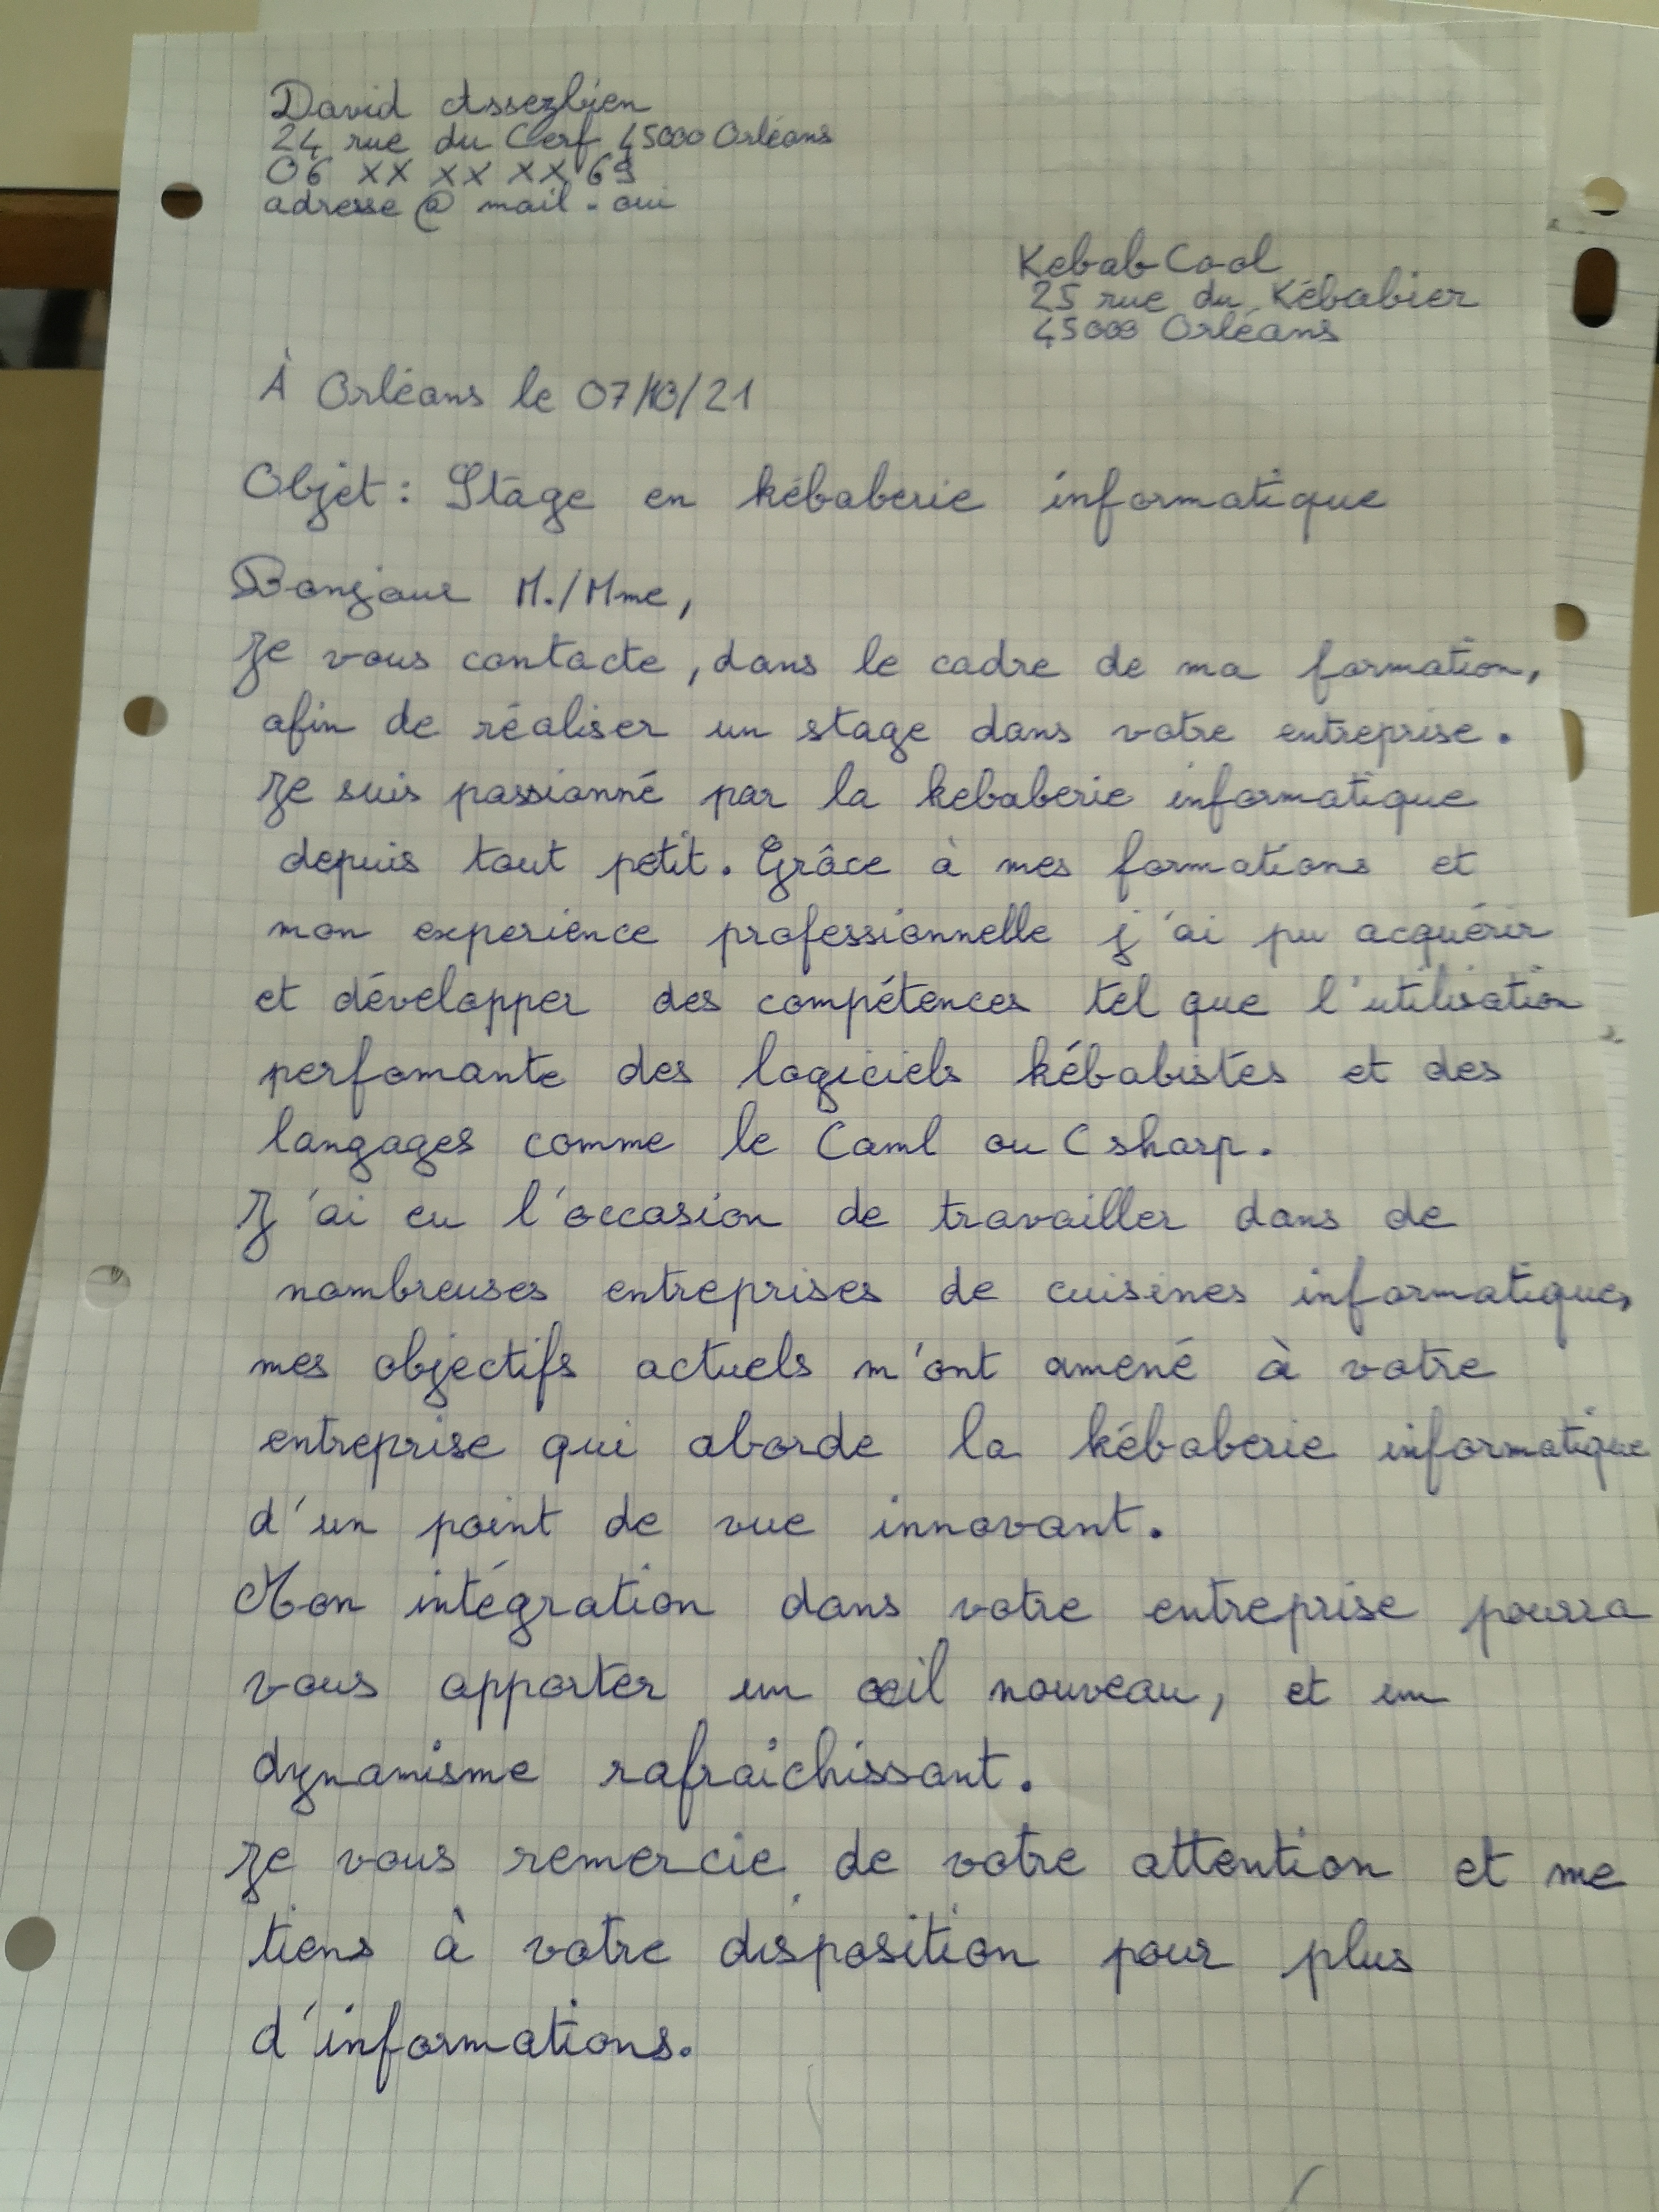 David Assezbien
24 rue du Cerf 45000 Orléans
06 XX XX XX 69
adresse@mail.oui
Kebab Cool
25 rue du Kébabier
45000 Orléans
À Orléans le 07/10/21
Objet : Stage en kébaberie informatique
Bonjour M./Mme,
Je vous contacte, dans le cadre de ma formation,
afin de réaliser un stage dans votre entreprise.
Je suis passionné par la kebaberie informatique
depuis tout petit. Grâce à mes formations et
mon experience professionnelle j'ai pu acquérir
et développer des compétences tel que l'utilisation
perfomante des logiciels kébabistes et des
langages comme le Caml ou C sharp.
J'ai eu l'occasion de travailler dans de
nombreuses entreprises de cuisines informatique,
mes objectifs actuels m'ont amené à votre
entreprise qui aborde la kébaberie informatique
d'un point de vue innovant.
Mon intégration dans votre entreprise pourra
vous apporter un œil nouveau, et un
dynamisme rafraîchissant.
Je vous remercie de votre attention et me
tiens à votre disposition pour plus
d'informations.